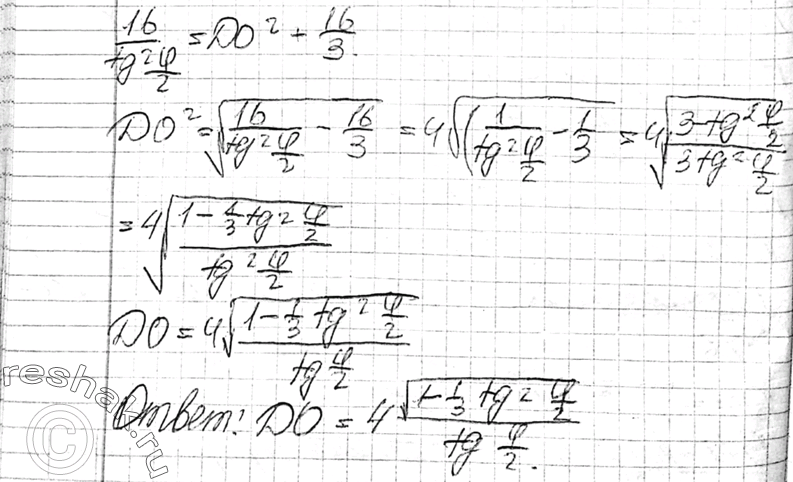 16/tg²φ/2 = DO² + 16/3.
DO² = √(16/tg²φ/2 − 16/3) = 4√((1/tg²φ/2 − 1/3) = 4√(3−tg²φ/2 / 3tg²φ/2)
= 4√(1 − 1/3 tg²φ/2 / tg²φ/2)
DO = 4√(1 − 1/3 tg²φ/2) / tgφ/2
Ответ: DO = 4√(1 − 1/3 tg²φ/2) / tg φ/2.
© reshak.ru